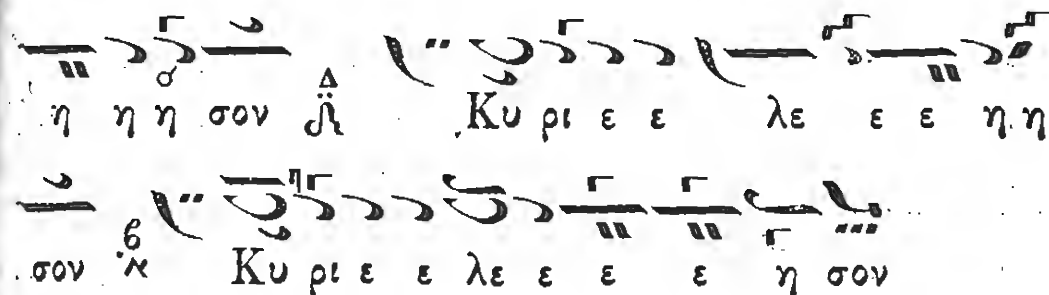 η η η σον Δ Κυ ρι ε ε λε ε ε η η
σον Κυ ρι ε ε λε ε ε ε η σον